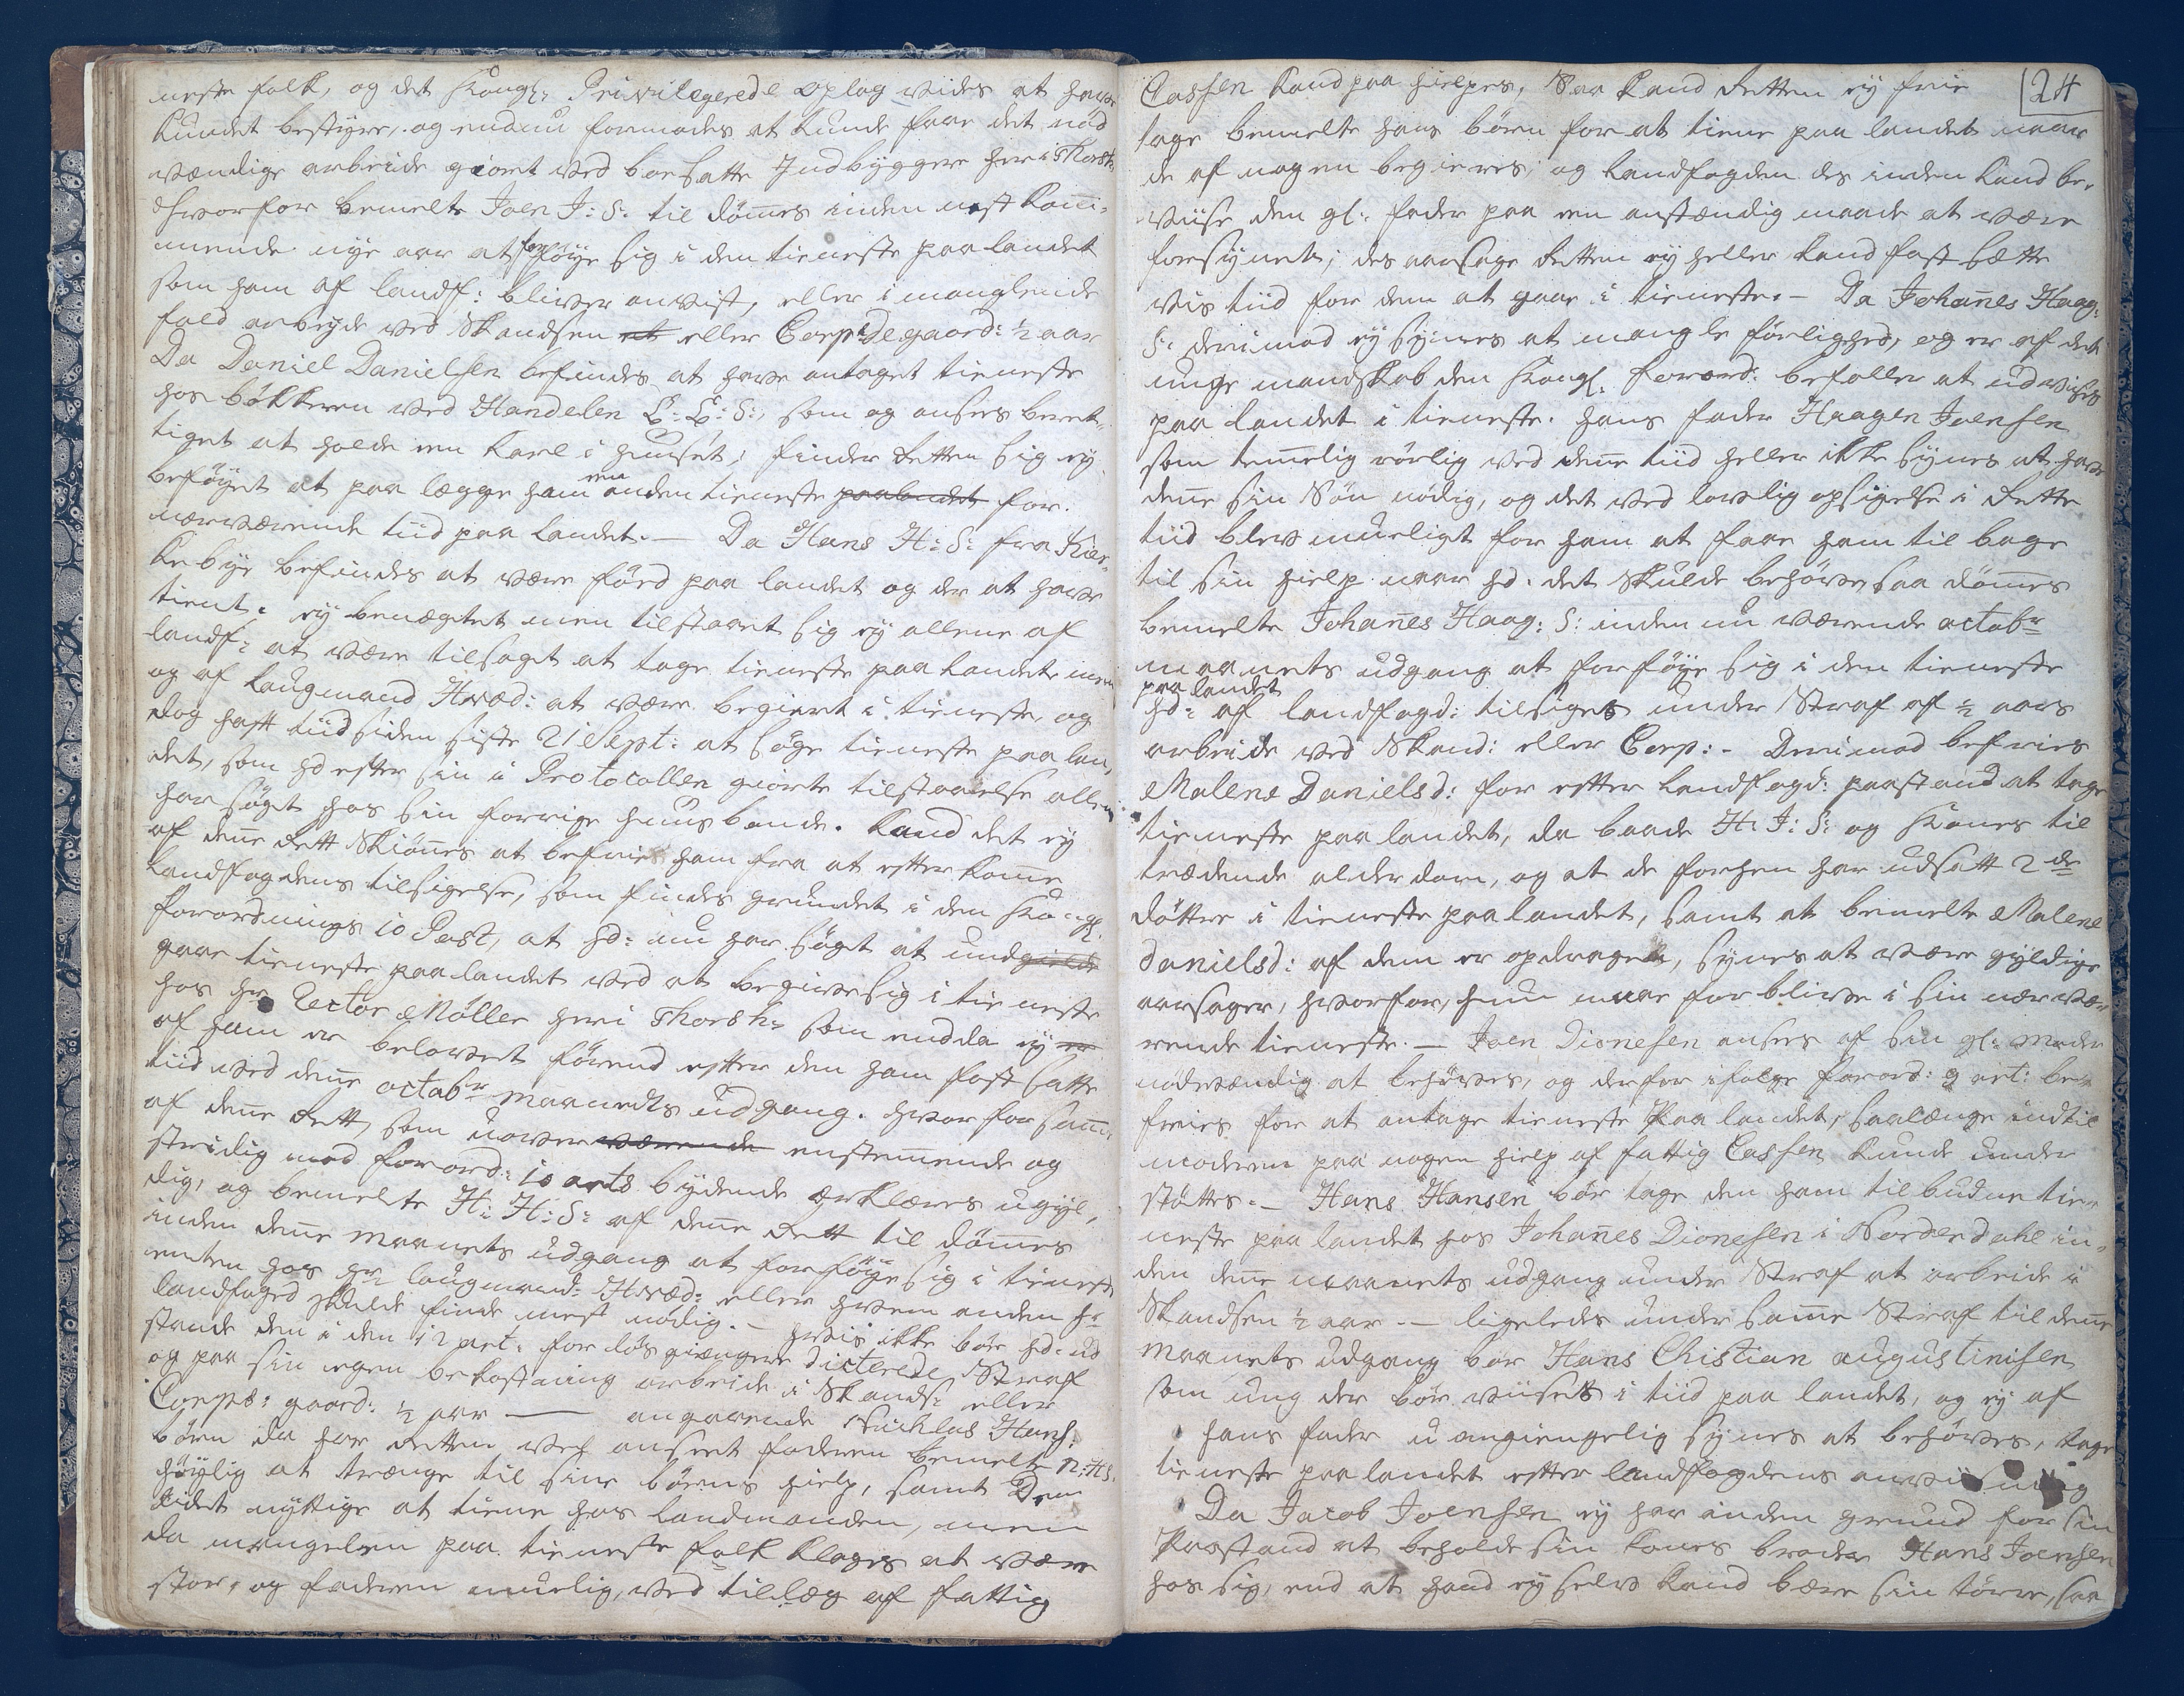 neste folk, og det Kongl: Privilegerede oplag vides at have
kundet bestyre, og endnu formodes at kunde faae det nöd
vændige arbeide giöret ved boesatte Indbyggere her i Thorsh:
hvorfor bemelte Joen J: S: til dömes inden nest kom̄-
mende nye aar at forföye sig i den tieneste paa landet
som ham af landf: bliver anvist, eller i manglende
fald arbeyde ved Skandsen et eller Corps de gaard: ½ aar
Da Daniel Danielsen befindes at have antaget tieneste
hos bökkeren ved Handelen L: L: S:, som og ansees beret-
tiget at holde en karl i huuset; finder Retten sig ey
beföyet at paa lægge ham en anden tieneste paalandet for
nærværende tiid paa landet. — Da Hans H: S: fra Kier-
kebye befindes at være förd paa landet og der at have
tient. ey benægtet men tilstaaet sig ey allene af
landf: at være tilsagt at tage tieneste paa landet men
og af laugmand Hvæd: at være begiert i tieneste, og
dog haft tiid siden siste 21 Sept: at söge tieneste paa lan,
det, som hd efter sin i Protocollen giorte tilstaaelse allene
har sögt hos sin forrige huusbonde. Kand det ey
af den̄e Rett skiön̄es at befrie ham fra at efterkom̄e
Landfogdens tilsigelse, som findes grundet i den Kongl:
forordnings 10 Post, at hd: nu har sögt at undgielde
gaae tieneste paa landet ved at begive sig i tieneste
hos hr Rector Möller her i Thorsh: som endda ey er
af ham er belovet förend efter den ham fast satte
tiid ved den̄e octobr maanedts udgang. hvorfor sam̄e
af den̄e Rett, som uoverværende enstem̄ende og
stridig mod forord: 10 arts bydende erklæres ugyl,
dig, og bemelte H: H: S: af den̄e Rett til dömes
inden den̄e maanets udgang at forföye sig i tieneste
enten hos hr laugmand: Hvæd: eller hvem anden hr
landfoged skulde finde mest nödig. — hvis ikke bör hd: ud
stande den i den 12 art: for lösgiengere dicterede Straf
og paa sin egen bekostning arbeide i Skands: eller
Corps: gaard: ½ aar — angaaende Nicklas Hans:
börn da har Retten vel anseet faderen bemelte N: H S:
höylig at trænge til sine börns hielp, samt Dem
lidet nyttige at tiene hos landmanden, men
da mangelen paa tieneste folk klages at være
stor, og faderen muelig, ved tillæg af fattig
24
Cassen kand paa hielpes, Saa kand Retten ey frie
tage bemelte hans börn for at tiene paa landet naar
de af nogen begieres, og landfogden des inden kand be-
viise den gl: fader paa en anstændig maade at være
forsynet; des aarsage Retten ey heller kand fast sætte
vis tiid for dem at gaae i tieneste. — Da Johan̄es Haag:
S: derimod ey synes at mangle förlighed, og er af det
unge mandskab den Kongl: forord: befaller at udvises
paa landet i tieneste. hans fader Haagen Joensen
som tem̄elig rörlig ved den̄e tiid heller ikke synes at have
den̄e sin Sön nödig, og det ved lovlig opsigelse i Rette
tiid blev mueligt for ham at faae ham til bage
til sin hielp naar hd: det skulde behöve, saa dömes
bemelte Johan̄es Haag: S: inden nu værende octobr
maanets udgang at forföye sig i den tieneste
paa landet
hd: af landfogd: tilsiges under Straf af ½ aars
arbeide ved Skand: eller Corp: - Derimod befries
Malene Danielsd: for efter landfogd: paastand at tage
tieneste paa landet, da baade H: J: S: og Kones til
trædende alderdom, og at de forhen har udsatt 2de
döttre i tieneste paa landet, samt at bemelte Malene
Danielsd: af dem er opdraget, synes at være gyldige
aarsager, hvorfor, hun maae forblive i sin nærvæ-
rende tieneste. — Joen Dionesen ansees af sin gl: moder
nödvændig at behöves, og derfor ifolge forord: 9 art: be-
fries for at antage tieneste paa landet, saalænge indtil
moderen paa nogen hielp af fattig Cassen kunde under
stöttes. — Hans Hansen bör tage den ham tilbudne tie-
neste paa landet hos Johan̄es Dionesen i Norderdahl in-
den den̄e maanets udgang under Straf at arbeide i
Skandsen ½ aar. — ligeledes under sam̄e Straf til den̄e
maanets udgang bör Hans Christian augustinisen
som ung der bör viises i tiid paa landet, og ey af
hans fader uomgiengelig synes at behöves, tage
tieneste paa landet efter landfogdens anviisning
Da Jacob Joensen ey har anden grund for sin
Paastand at beholde sin kones broder Hans Joensen
hos sig, end at hand ey selv kand bære sin törve, saa